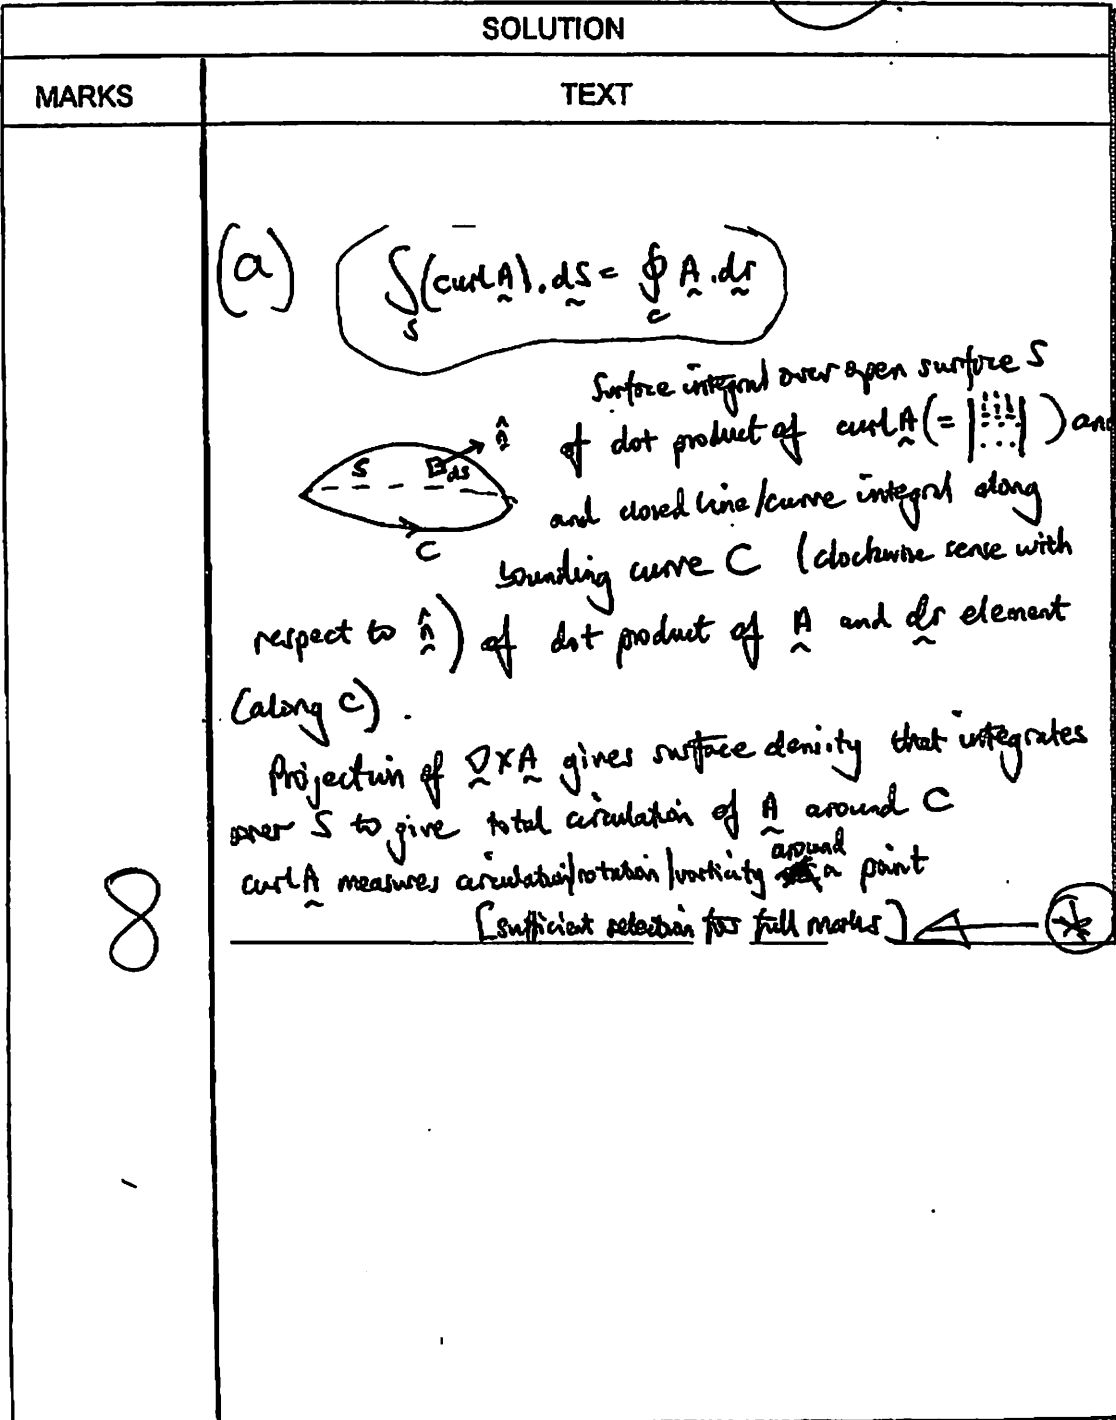 SOLUTION
MARKS TEXT
(a) ∫_S (curl A) . dS = ∮_C A . dr
Surface integral over open surface S
n̂
of dot product of curl A (= | | ) and
S dS
and closed line/curve integral along
C
bounding curve C (clockwise sense with
respect to n̂) of dot product of A and dr element
(along C).
Projection of ∇×A gives surface density that integrates
over S to give total circulation of A around C
curl A measures circulation/rotation/vorticity around a point
8
[sufficient selection for full marks] ← *